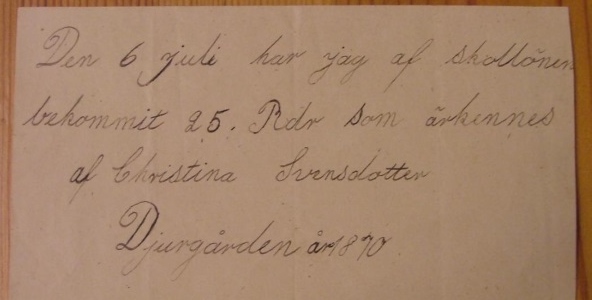 Den 6 juli har jag af skollönen
bekommit 25. Rdr som ärkennes
af Christina Svensdotter
Djurgården år 1870.